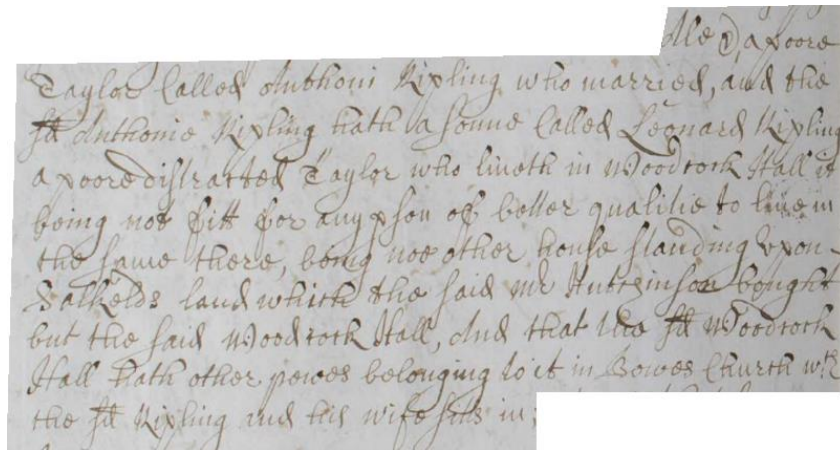 a poore
Taylor Called Anthoni Kipling who married, and the
sd Anthonie Kipling hath a sonne Called Leonard Kipling
a poore distracted Taylor who liueth in Woodcock Hall it
being not fitt for any pson of better qualitie to liue in
the same there, being noe other house standing vpon
Salkelds land which the said Mr Hutchinson bought
but the said Woodcock Hall, And that the sd Woodcock
Hall hath other pewes belonging to it in Bowes Church wch
the sd Kipling and his wife sitts in;